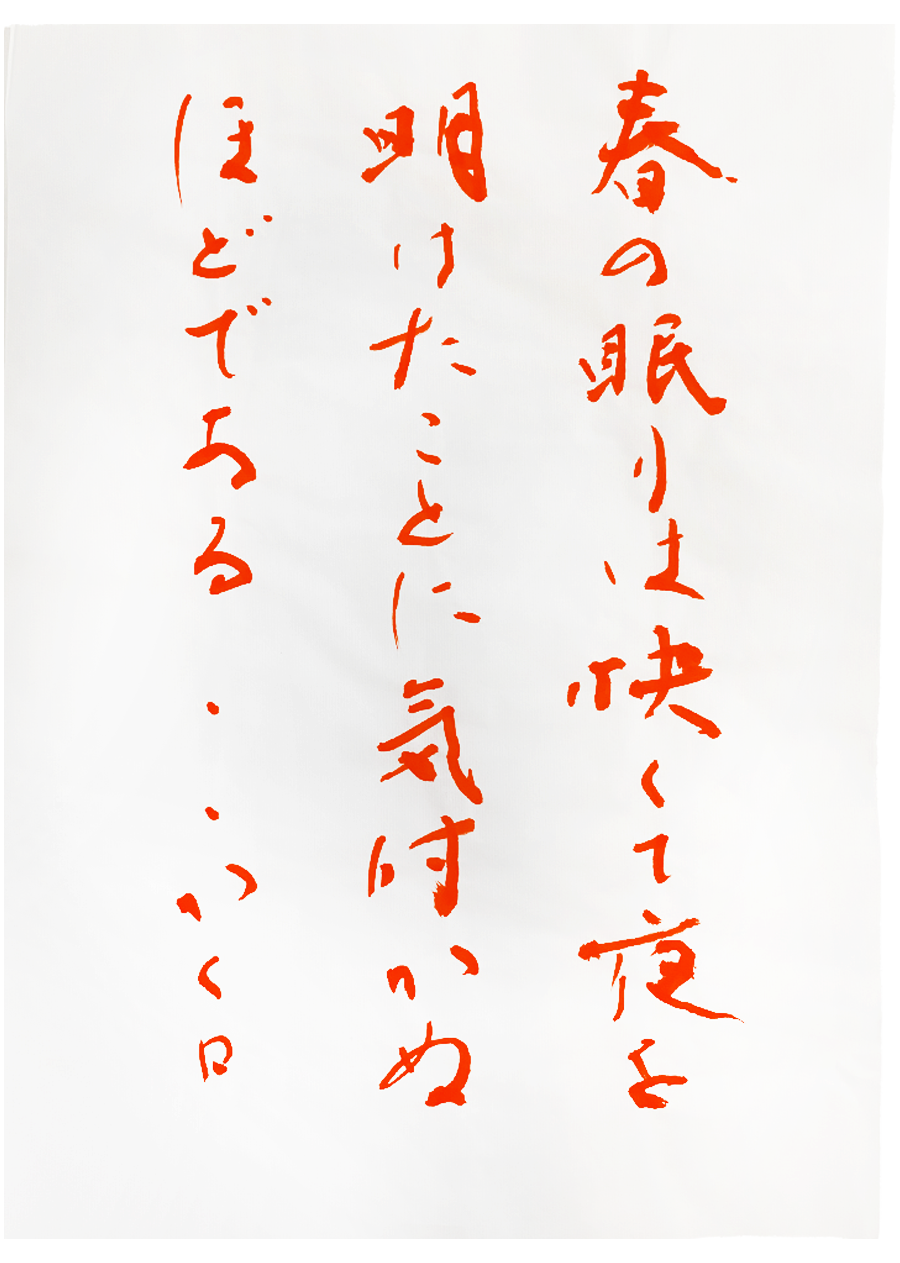 春の眠りは快くて夜を
明けたことに気付かぬ
ほどである・・かく日